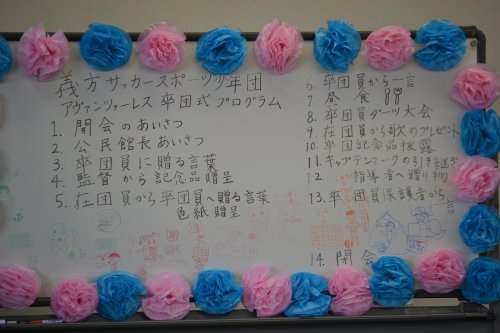 義方サッカースポーツ少年団
アヴァンツァーレス 卒団式 プログラム
1. 開会のあいさつ
2. 公民館長あいさつ
3. 卒団員に贈る言葉
4. 監督から記念品贈呈
5. 在団員から卒団員へ贈る言葉
色紙贈呈
6. 卒団員から一言
7. 昼食
8. 卒団員ダーツ大会
9. 在団員から歌のプレゼント
10. 卒団記念品披露
11. キャプテンマークの引き継ぎ
12. 指導者へ贈り物
13. 卒団員保護者から
一言
14. 閉会